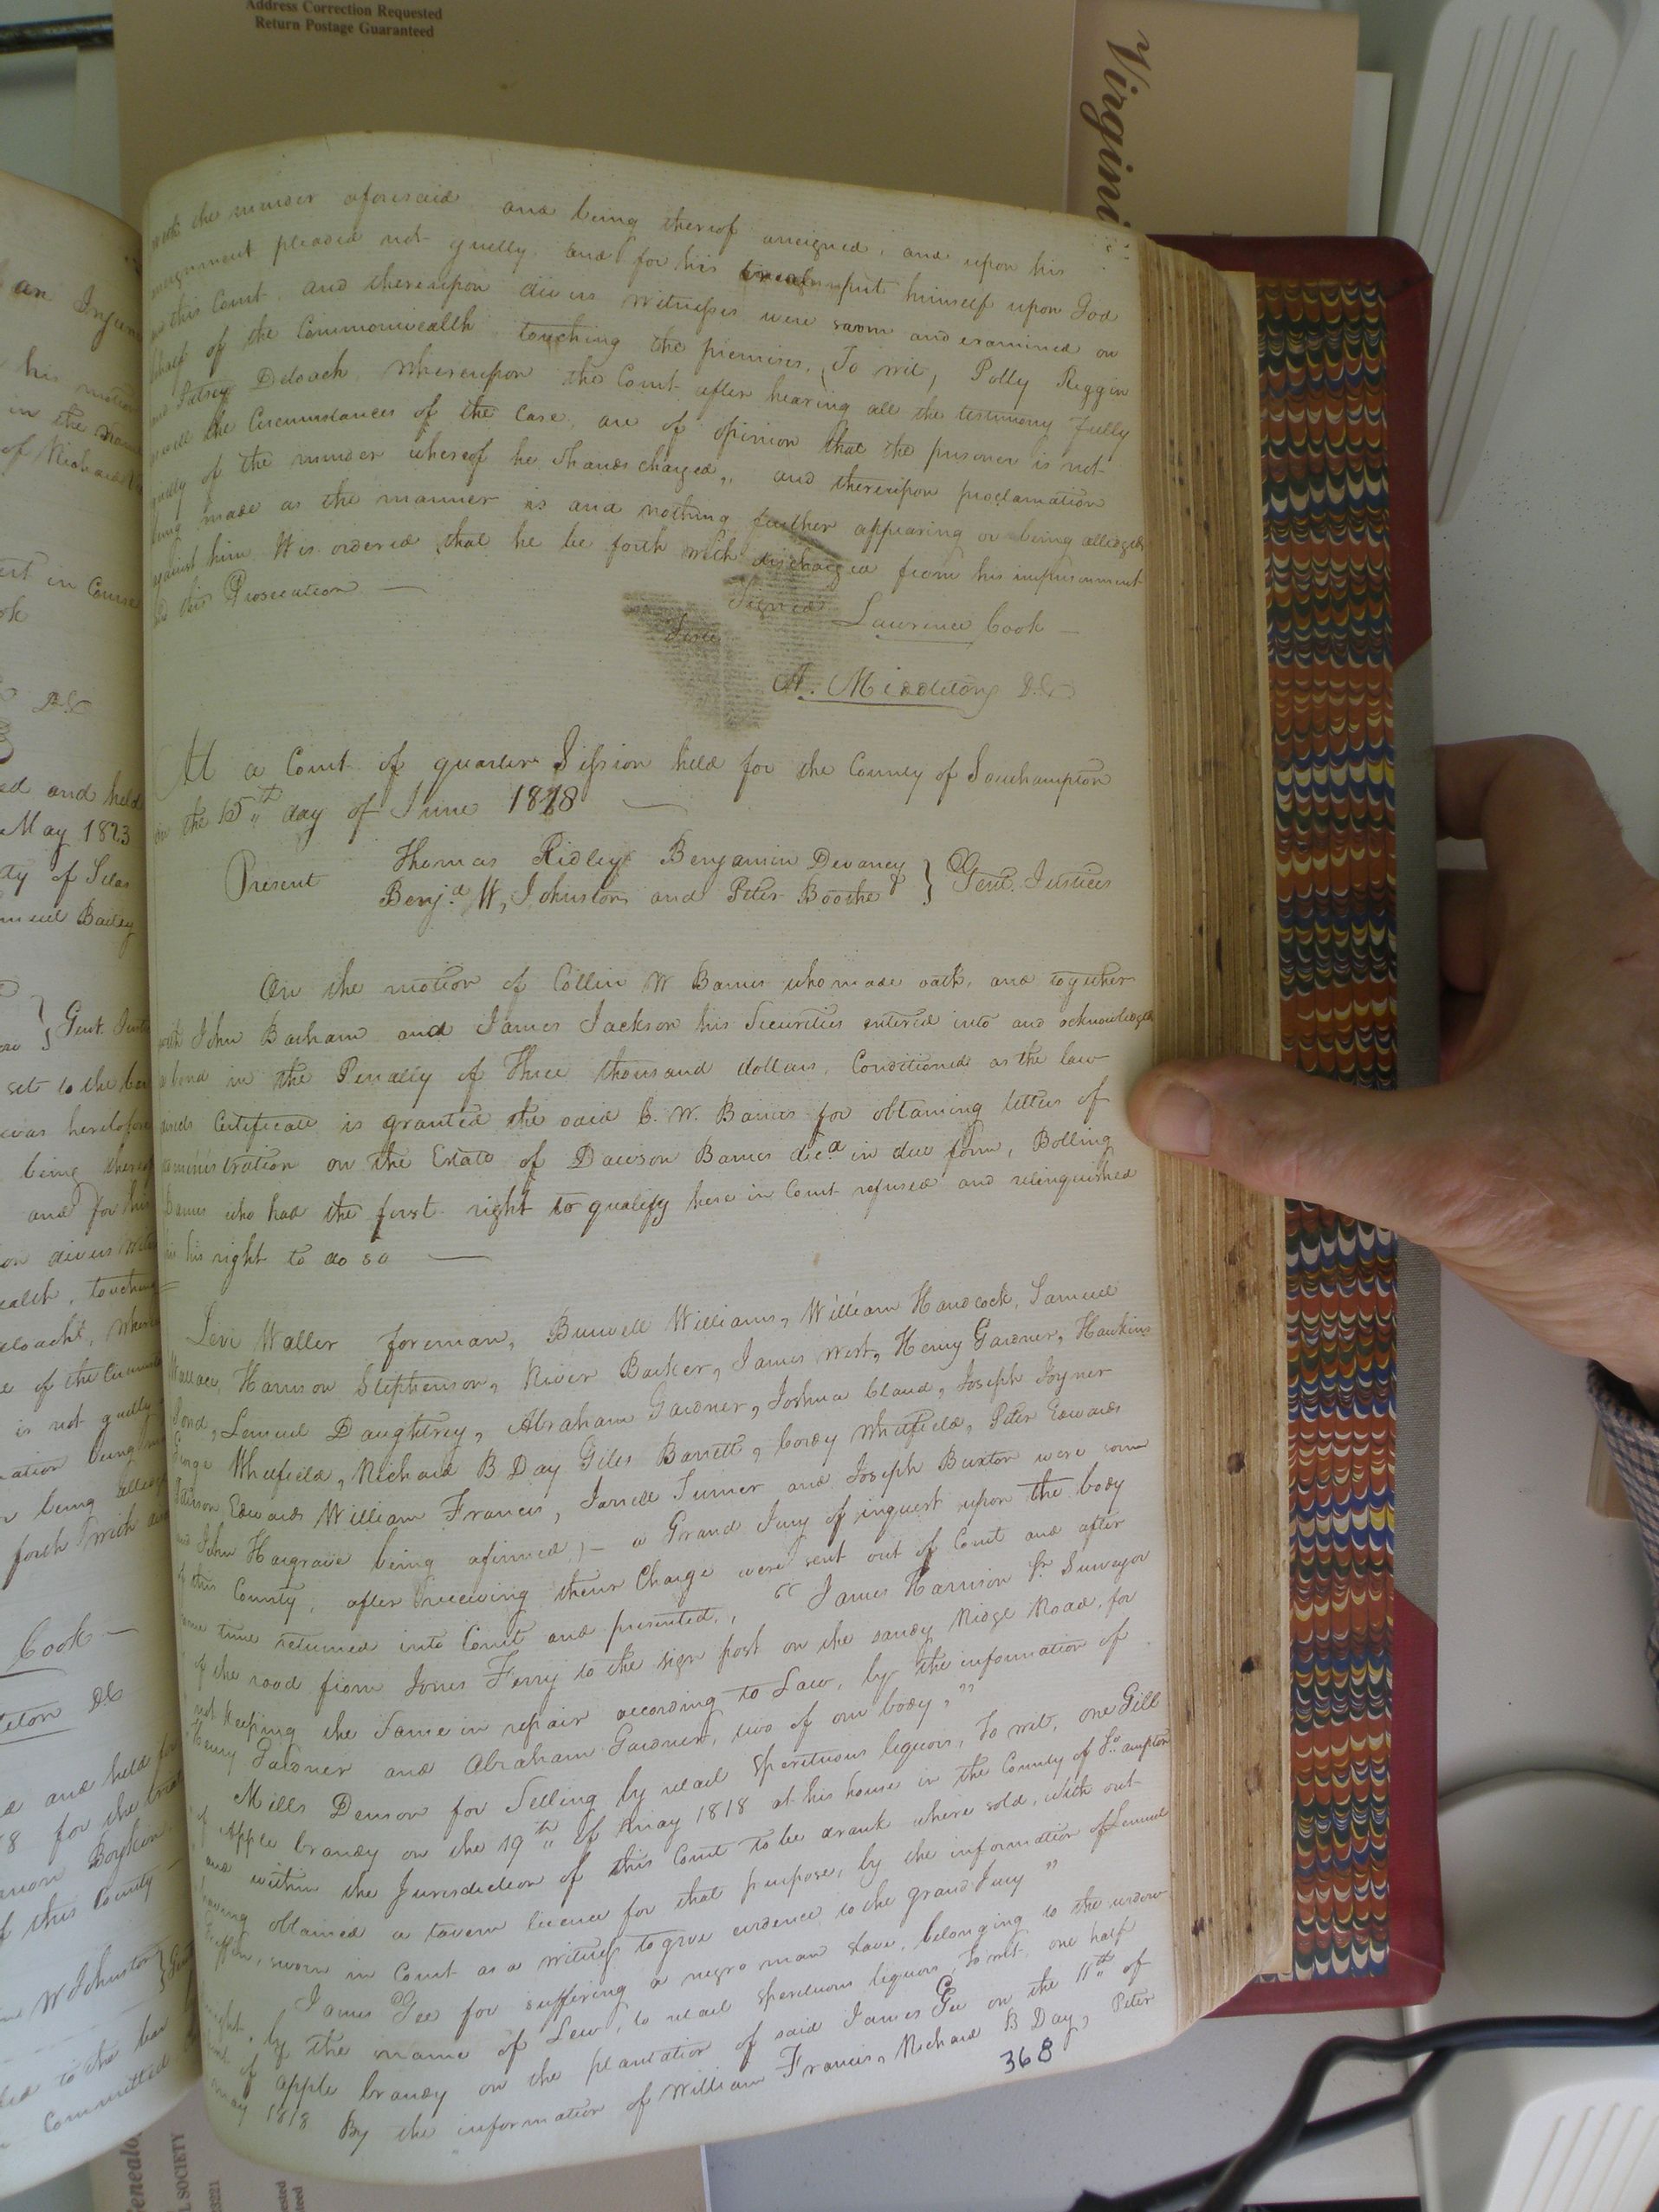 Address Correction Requested
Return Postage Guaranteed
Virgini
with the murder aforesaid and being thereof arraigned, and upon his
arraignment pleaded not guilty and for his trial put himself upon God
and this Court and thereupon divers witnesses were sworn and examined on
behalf of the Commonwealth touching the premises, To wit, Polly Riggin
and Patsey Deloach, Whereupon the Court after hearing all the testimony fully
the Circumstances of the Case, are of opinion that the prisoner is not
guilty of the murder whereof he Stands charged,, and thereupon proclamation
being made as the manner is and nothing further appearing or being alledged
against him It is ordered that he be forth with discharged from his imprisonment
this Prosecution —
Signed Lawrence Cook —
Teste
A. Middleton D.C.
At a Court of quarter Session held for the County of Southampton
on the 15th day of June 1818 —
Present Thomas Ridley Benjamin Devaney
Benj.d W, Johnston and Peter Boothe } Gent. Justices
On the motion of Collin W Barnes who made oath, and together
with John Barham and James Jackson his Securities entered into and acknowledged
a bond in the Penalty of Three thousand dollars, Conditioned as the law
directs Certificate is granted the said C. W. Barnes for obtaining letters of
administration on the Estate of Dawson Barnes dec.d in due form, Bolling
Barnes who had the first right to qualify here in Court refused and relinquished
his right to do so —
Levi Waller foreman, Burwell Williams, William Handcock, Samuel
Wallace, Harrison Stephenson, River Barker, James West, Henry Gardner, Hawkins
Pond, Lemuel Daughtrey, Abraham Gardner, Joshua Claud, Joseph Joyner
George Whitfield, Richard B Day Giles Barrett, Cordy Whitfield, Peter Edwards
Edwards William Francis, Jarrell Turner and Joseph Buxton were sworn
and John Hargrave being afirmed) – a Grand Jury of inquest upon the body
of this County, after receiving their Charge were sent out of Court and after
some time returned into Court and presented., "James Harrison Sr Surveyor
of the road from Jones Ferry to the sign post on the sandy Ridge Road, for
not keeping the Same in repair according to Law, by the information of
Henry Gardner and Abraham Gardner, two of our body,"
Mills Denson for Selling by retail Sperituous liquors, To wit, one Gill
of Apple brandy on the 19th of May 1818 at his house in the County of So.ampton
and within the Jurisdiction of this Court to be drank where sold, with out
having obtained a tavern licence for that purpose, by the information of Lemuel
sworn in Court as a witness to give evidence to the grand Jury"
James Gee for suffering a negro man slave, belonging to the widow
by the name of Lew, to retail Sperituous liquors, To wit, one half
pint of apple brandy on the plantation of said James Gee on the 11th of
may 1818 By the information of William Francis, Richard B Day, Peter
368
an Injun
his motion
in the
of Richard
in Course
D.C.
and held
May 1823
of Silas
Bailey
} Gent. Justi
set to the bar
was heretofore
being thereof
and for his
on divers witn
ealth, touching
eloacht, Where
of the Circumst
is not guilty
ation being
r being alledg
forth with
Cook —
leton DC
and held
8 for the trial
Boykin
this County —
W Johnston } Gent
to the bar
Committed
Genealo
L SOCIETY
23221